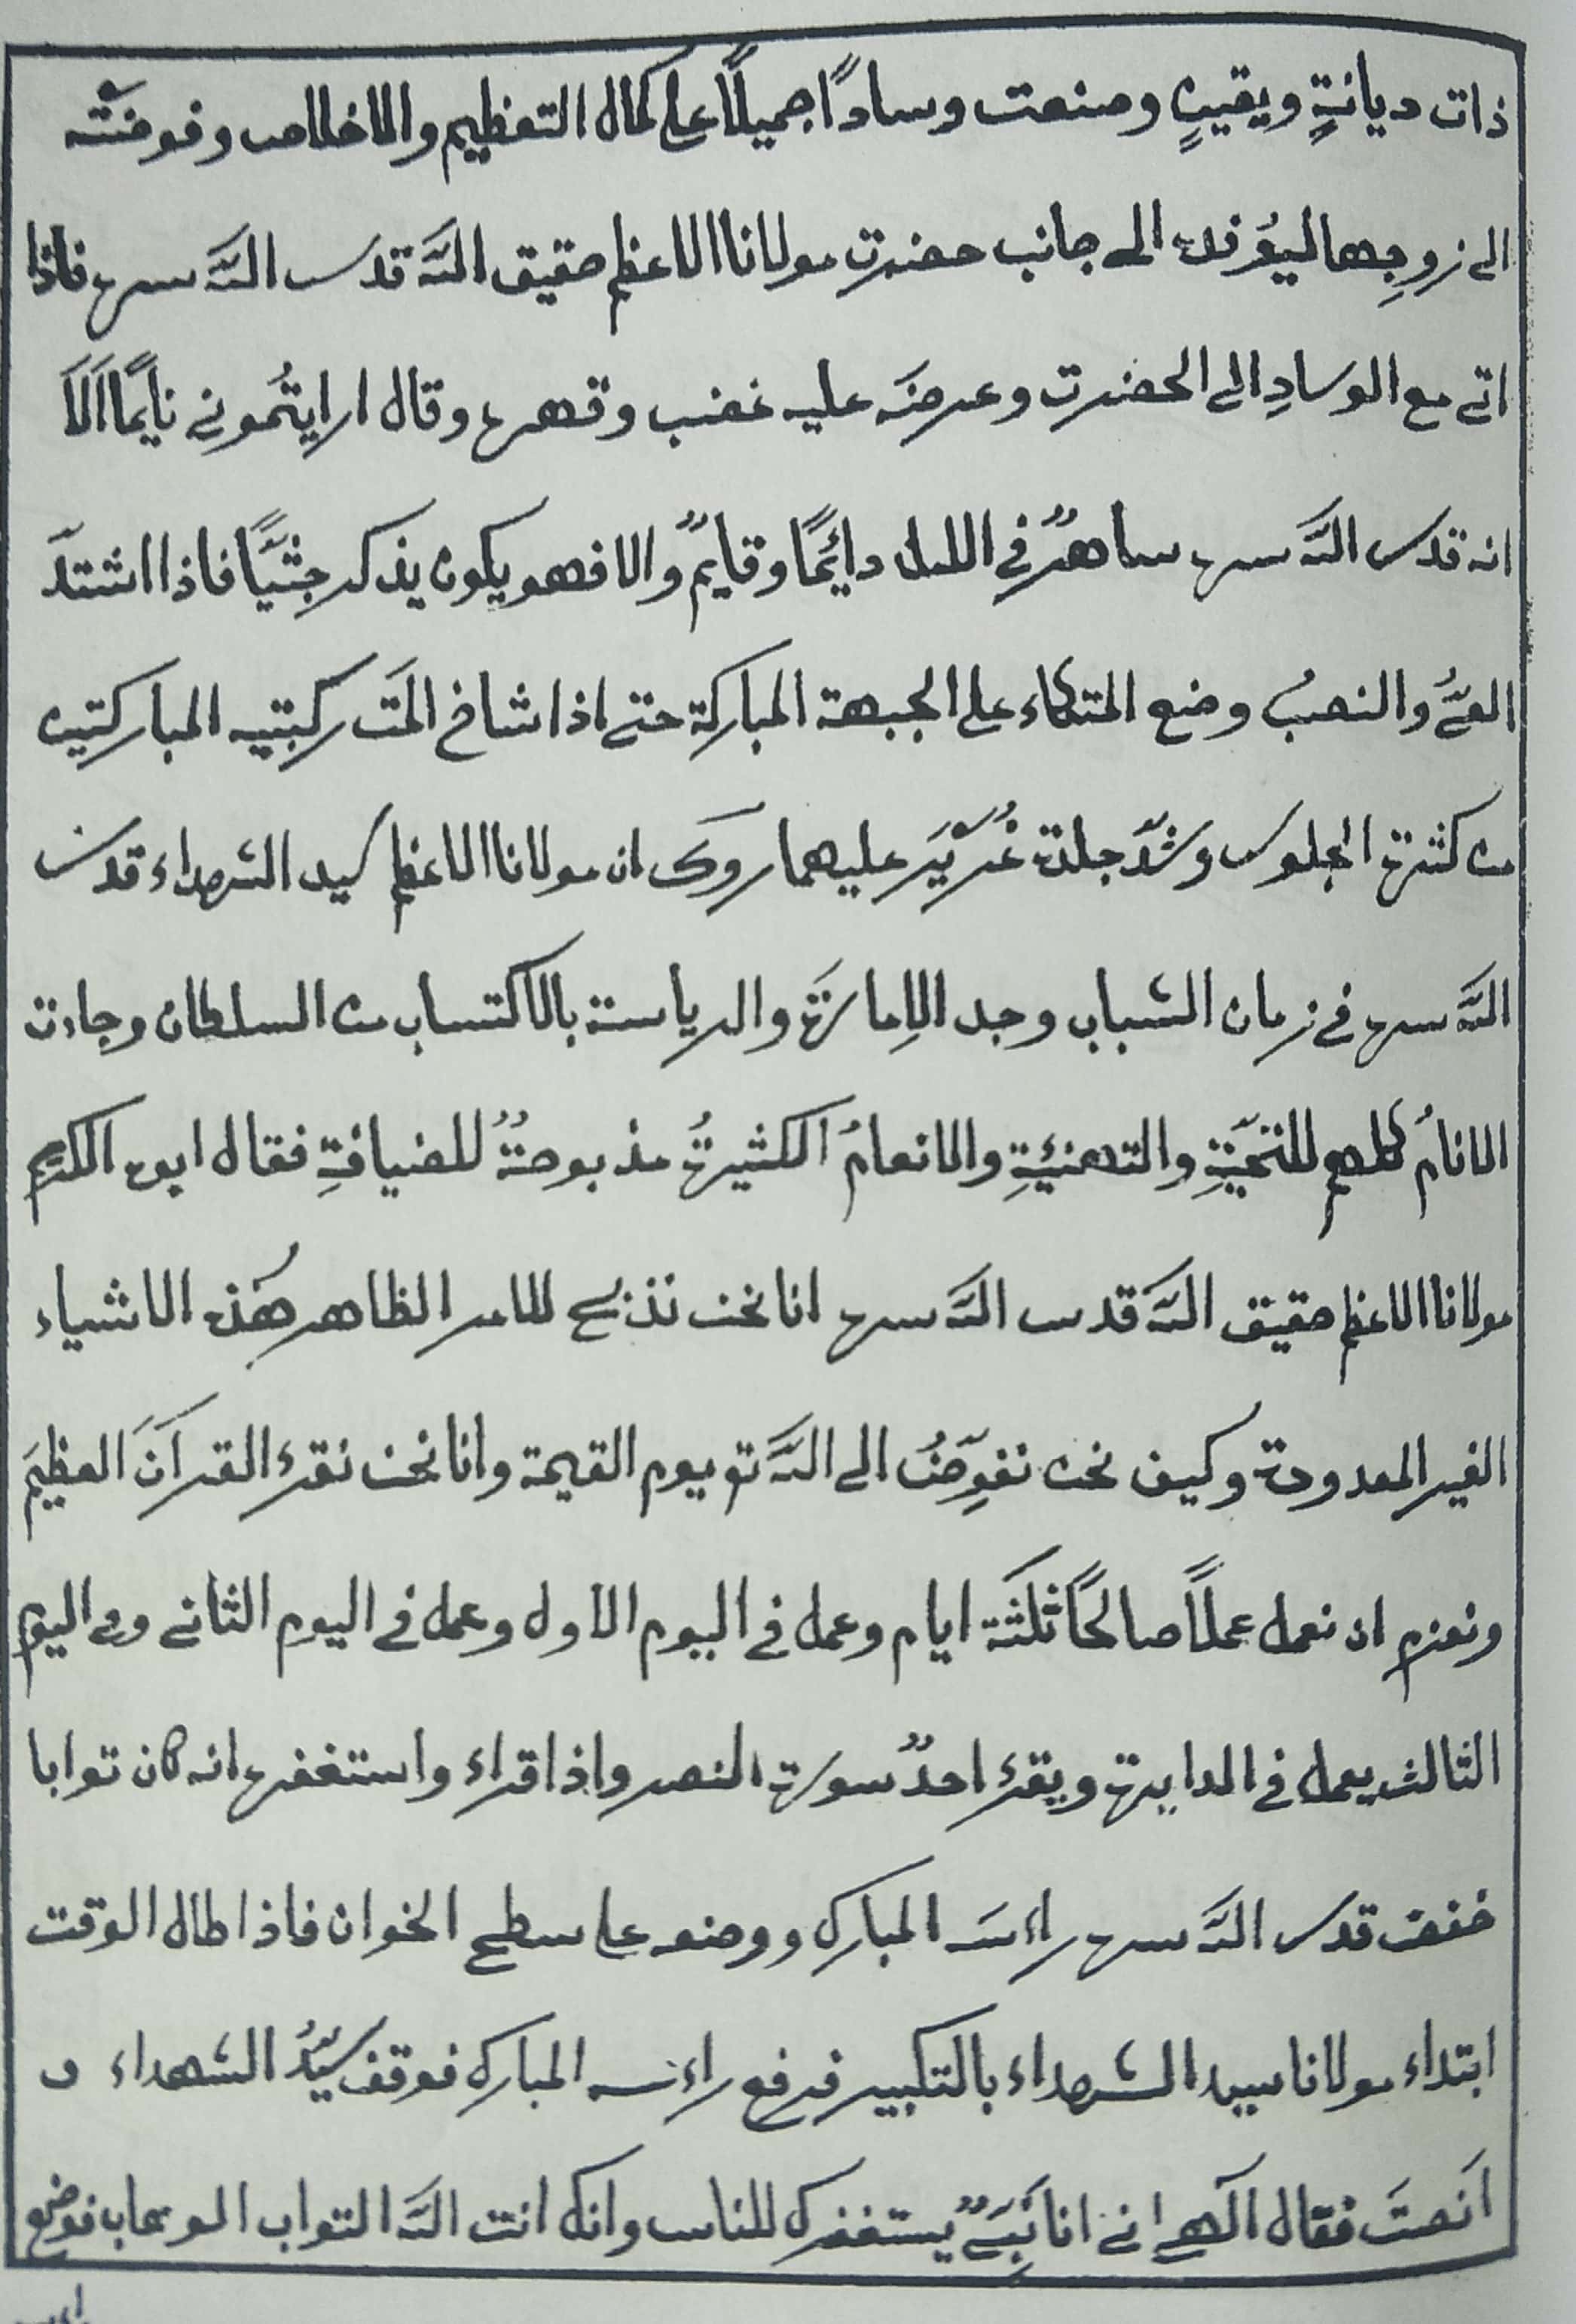 ذات ديانةٍ ويقينٍ وصنعت وسادًا جميلًا على كمال التعظيم والاخلاص وفوضتْه
الى زوجِها ليؤفده الى جانب حضرت مولانا الاعظم حقيق اللّه قدس اللّه سره فاذا
اتى مع الوسادِ الى الحضرت وعرضَه عليه غضب وقهره وقال ارايتُموني نايمًا اَلَاَ
انه قدس اللّه سره ساهرٌ في الليل دائمًا وقايمٌ والا فهو يكون يذكر جثيًّا فاذا اشتدّ
العيُّ والنصبُ وضع المتكاء على الجبهة المباركة حتى اذا شاخ المَت ركبتيه المباركتين
من كثرة الجلوس وشدّ جلدة عليهما روى ان مولانا الاعظم سيد الشهداء قدس
اللّه سره في زمان الشباب وجد الاِمارَة والرياسة بالاكتساب من السلطان وجاءت
الانامُ كلهم للتحيّةِ والتهنئِةِ والانعامُ الكثيرةُ مذبوحةٌ للضيافةِ فقال ابن الكريم
مولانا الاعظم حقيق اللّه قدس اللّه سره انا نحن نذبح للامر الظاهر هٰذه الاشياء
الغير المعدودة وكيف نحن نفوِّضُ الى اللّه تع يوم القيمة وانا نحن نقرء القرآنَ العظيمَ
ونعزم ان نعمل عملًا صالحًا ثلثَة ايام وعمل في اليوم الاول وعمل في اليوم الثاني وفي اليوم
الثالث يعمل في الدايرة ويقرء احدٌ سورة النصر واذا قراء واستغفره انه كان توابا
خفف قدس اللّه سره راءسَه المبارك ووضعه على سطح الخوان فاذا طال الوقت
ابتداء مولانا سيد الشهداء بالتكبير فرفع راءسه المبارك فوقف سيّدُ الشهداء و
اَنصتَ فقال آلهي اني انا نَبيٌّ يستغفرك للناس وانك انت اللّه التواب الوهاب فوضع